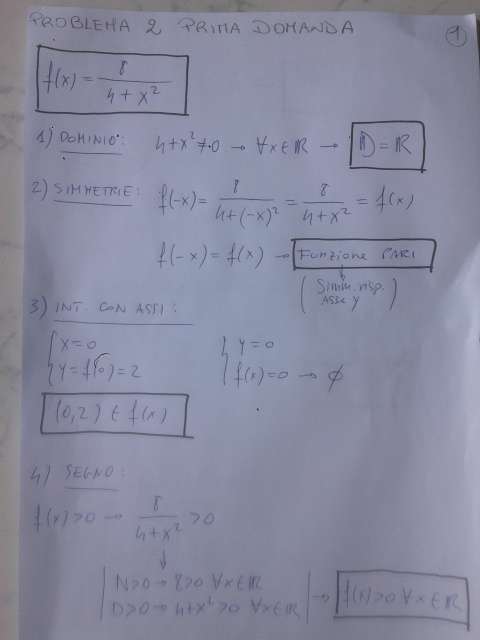 PROBLEMA 2 PRIMA DOMANDA
1
f(x) = 8 / (4 + x²)
1) DOMINIO: 4+x² ≠ 0 → ∀x∈ℝ → 𝔻 = ℝ
2) SIMMETRIE: f(-x) = 8 / (4+(-x)²) = 8 / (4+x²) = f(x)
f(-x) = f(x) → FUNZIONE PARI
(SIMM. RISP. ASSE Y)
3) INT. CON ASSI:
{ x=0 { y=0
{ y=f(0)=2 { f(x)=0 → ∅
(0,2) ∈ f(x)
4) SEGNO:
f(x)>0 → 8 / (4+x²) >0
N>0 → 8>0 ∀x∈ℝ
D>0 → 4+x²>0 ∀x∈ℝ → f(x)>0 ∀x∈ℝ